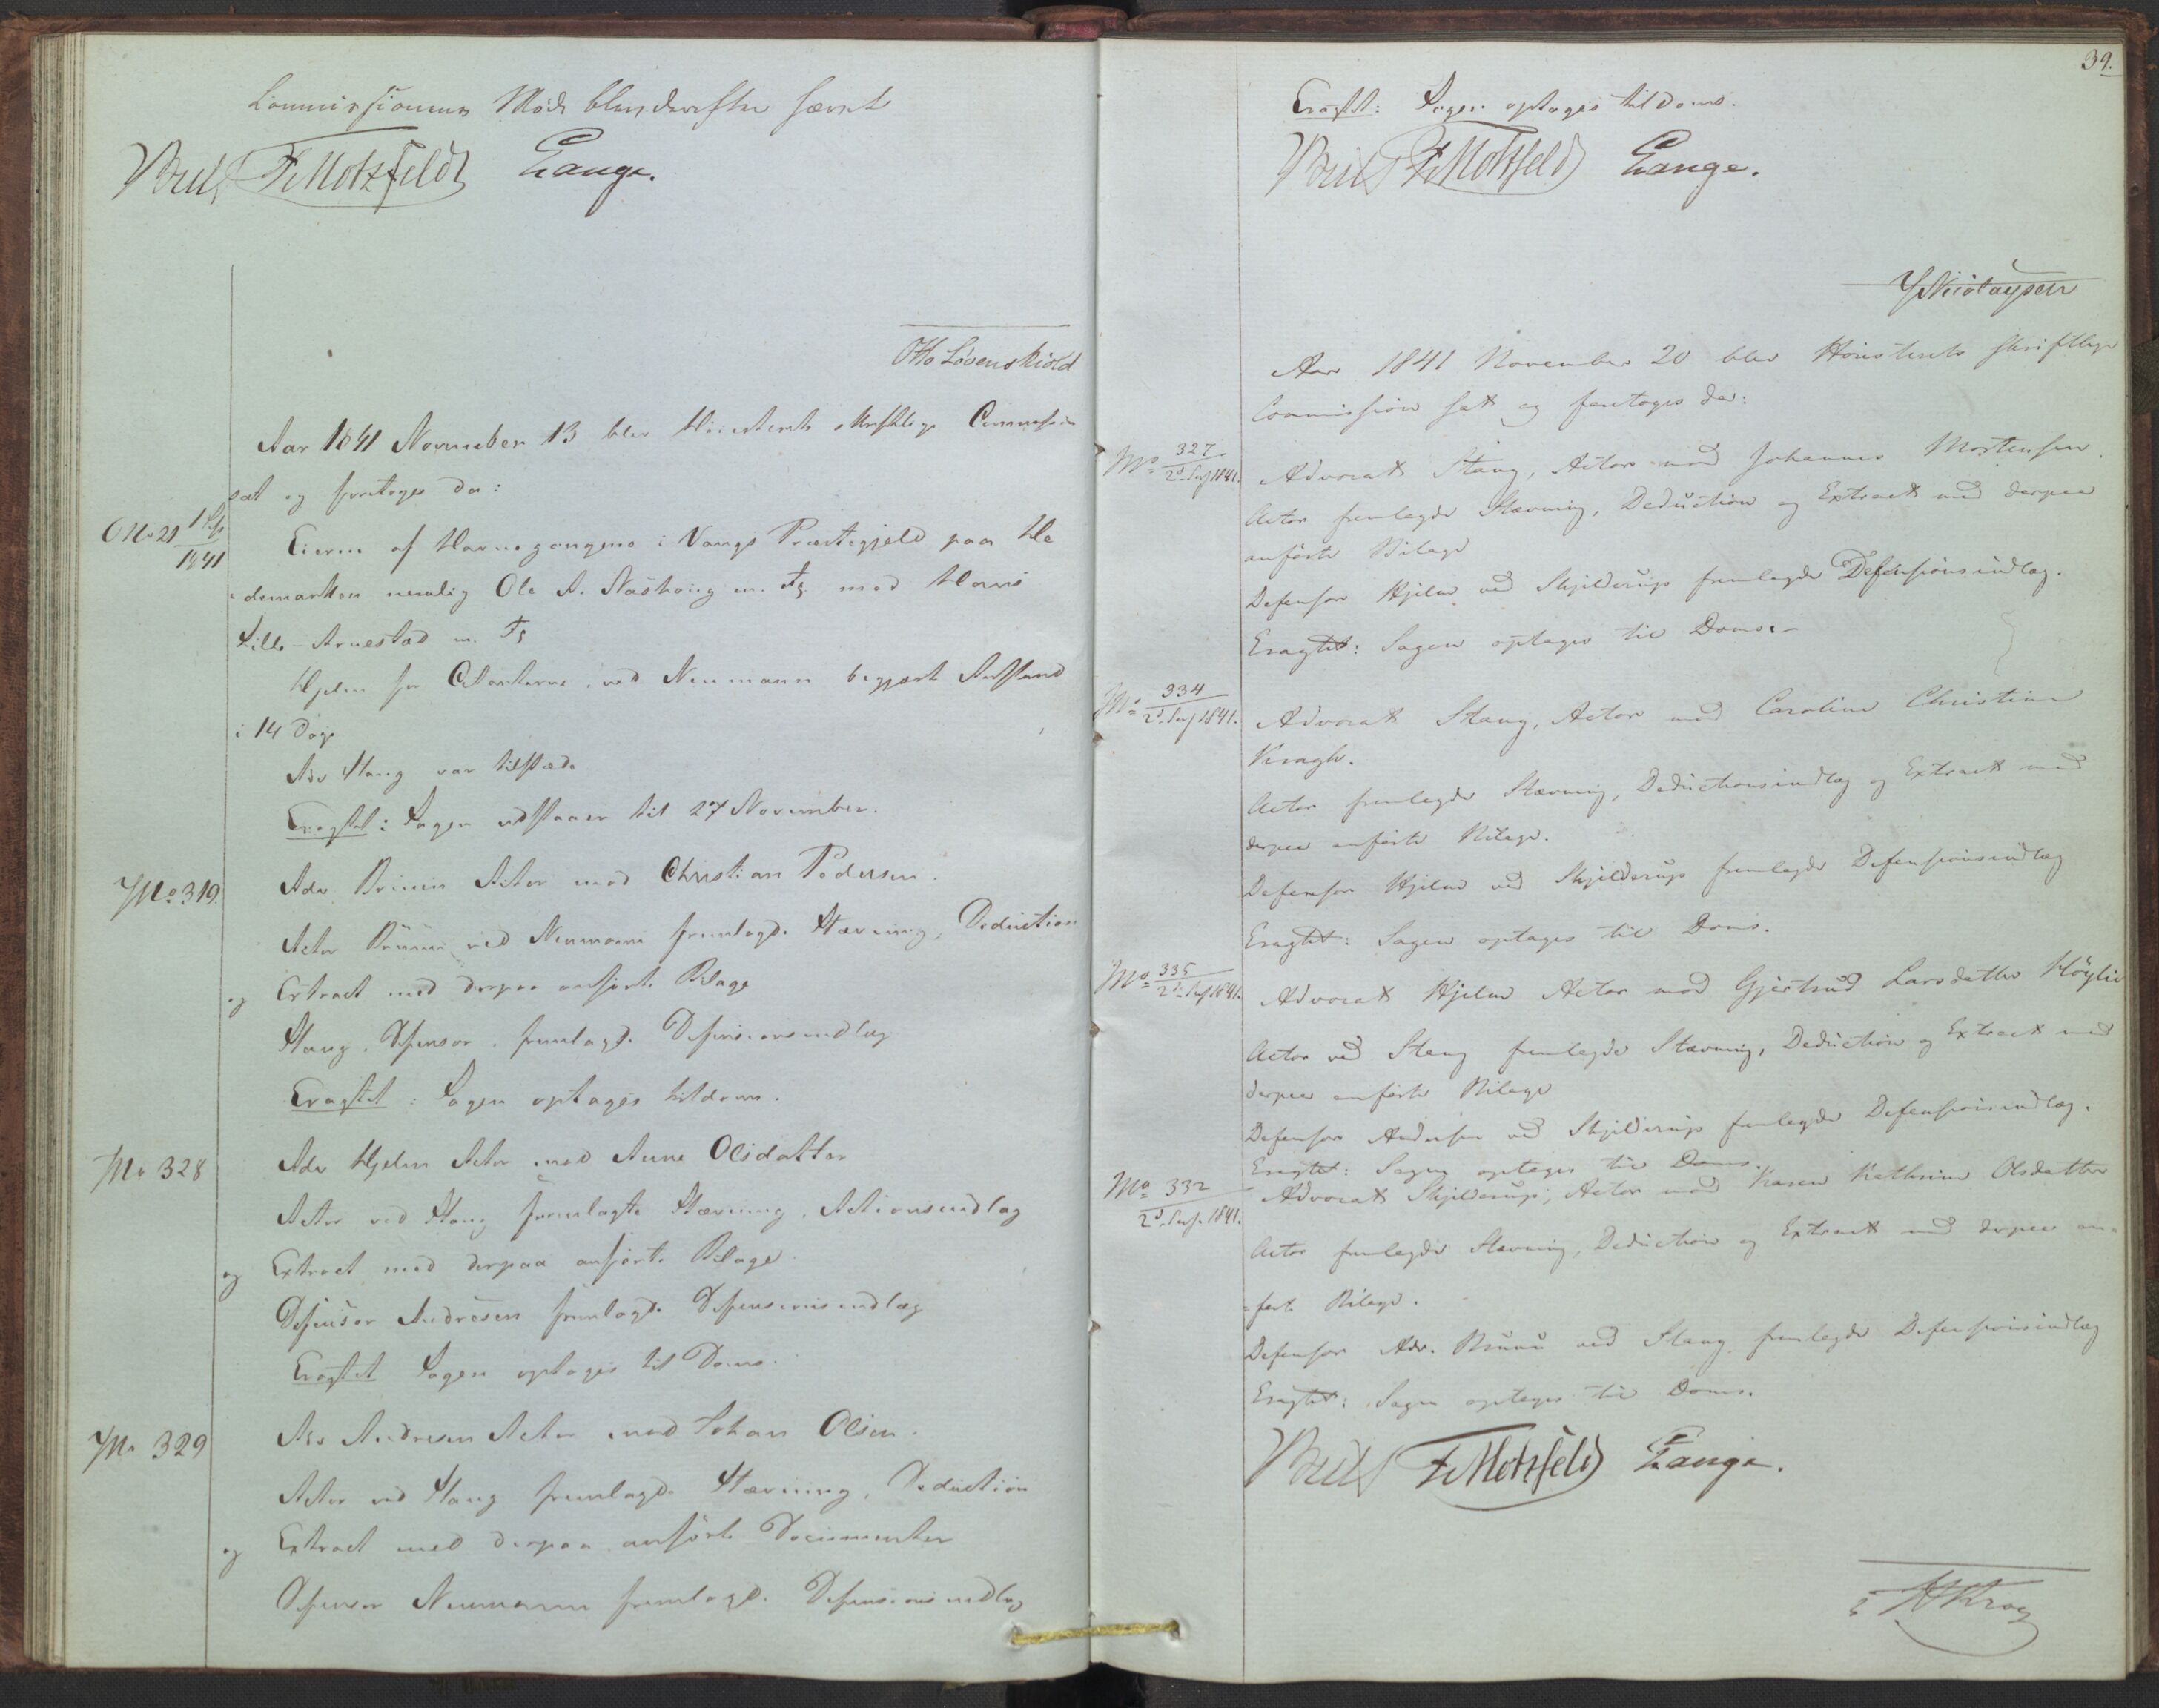 Commissionens Møde blev derefter hævet
F. Motzfeldt Lange.
Otto Løvenskiold
Aar 1841 November 13 blev Høiesterets skriftlige Commission
sat og foretoges da:
No 21 1 Sess 1841
Eierne af Havnegangene i Vangs Præstegjeld paa He
demarken nemlig Ole A. Nashoug m. Fl. mod Hans
Lille-Arnestad m. Fl
Hjelm for Citanterne ved Neumann begjært Udstand
i 14 Dage
Adv Stang var tilstæde
Eragtet: Sagen udstaaer til 27 November.
No 319.
Adv Bruun Actor mod Christian Pedersen.
Actor Bruun ved Neumann fremlagde Stævning, Deduction
og Extract med derpaa anførte Bilage
Stang, Defensor, fremlagde Defensionsindlæg
Eragtet: Sagen optages til doms.
No 328
Adv Hjelm Actor mod Anne Olsdatter
Actor ved Stang fremlagte Stævning, Actionsindlæg
og Extract med derpaa anførte Bilage.
Defensor Andresen fremlagde Defensionsindlæg
Eragtet Sagen optages til Doms.
No 329
Adv Andresen Actor mod Johan Olsen.
Actor ved Stang fremlagde Stævning, Deduction
og Extract med derpaa anførte Documenter
Defensor Neumann fremlagde Defensionsindlæg
39.
Eragtet: Sagen optages til doms.
F. Motzfeldt Lange.
Nicolaysen
Aar 1841 November 20 blev Høiesterets skriftlige
Commission sat og foretoges da:
No 327 2d Sess 1841.
Advocat Stang, Actor mod Johannes Mortensen.
Actor fremlagde Stævning, Deduction og Extract med derpaa
anførte Bilage
Defensor Hjelm ved Skjelderup fremlagde Defensionsindlæg.
Eragtet: Sagen optages til Doms.-
No 334 2d Sess 1841.
Advocat Stang, Actor mod Caroline Christine
Kragh.
Actor fremlagde Stævning, Deductionsindlæg og Extract med
derpaa anførte Bilage.
Defensor Hjelm ved Skjelderup fremlagde Defensionsindlæg
Eragtet: Sagen optages til Doms.
No 335 2d Sess 1841.
Advocat Hjelm Actor mod Gjertrud Larsdatter Høylie
Actor ved Stang fremlagde Stævning, Deduction og Extract med
derpaa anførte Bilage
Defensor Andresen ved Skjelderup fremlagde Defensionsindlæg.
Eragtet: Sagen optages til Doms.
No 332 2d Sess. 1841.
Advocat Skjelderup, Actor mod Karen Kathrine Olsdatter
Actor fremlagde Stævning, Deduction og Extract med derpaa an-
førte Bilage.
Defensor Adv. Bruun ved Stang fremlagde Defensionsindlæg
Eragtet: Sagen optages til Doms.
F. Motzfeldt Lange.